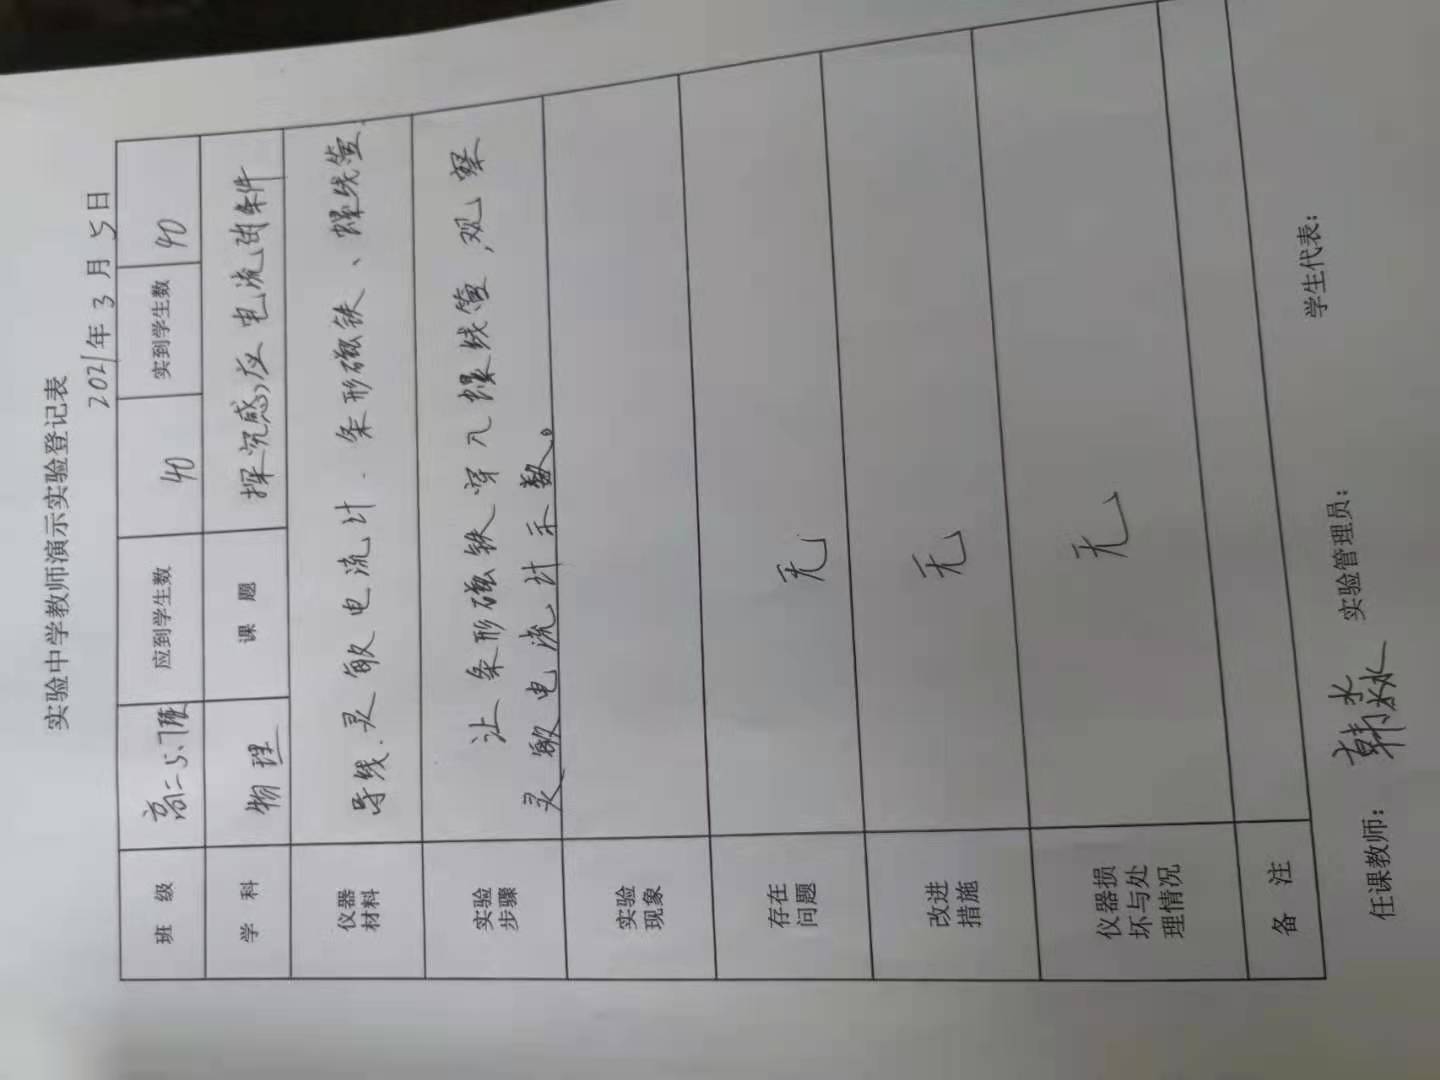 实验中学教师演示实验登记表
2021年3月5日
班 级 高二5.7班 应到学生数 40 实到学生数 40
学 科 物理 课 题 探究感应电流的条件
仪器材料 导线.灵敏电流计.条形磁铁、螺线管.
实验步骤 让条形磁铁穿入螺线管,观察
灵敏电流计示数。
实验现象
存在问题 无
改进措施 无
仪器损坏与处理情况 无
备 注
任课教师: 韩淼 实验管理员: 学生代表: